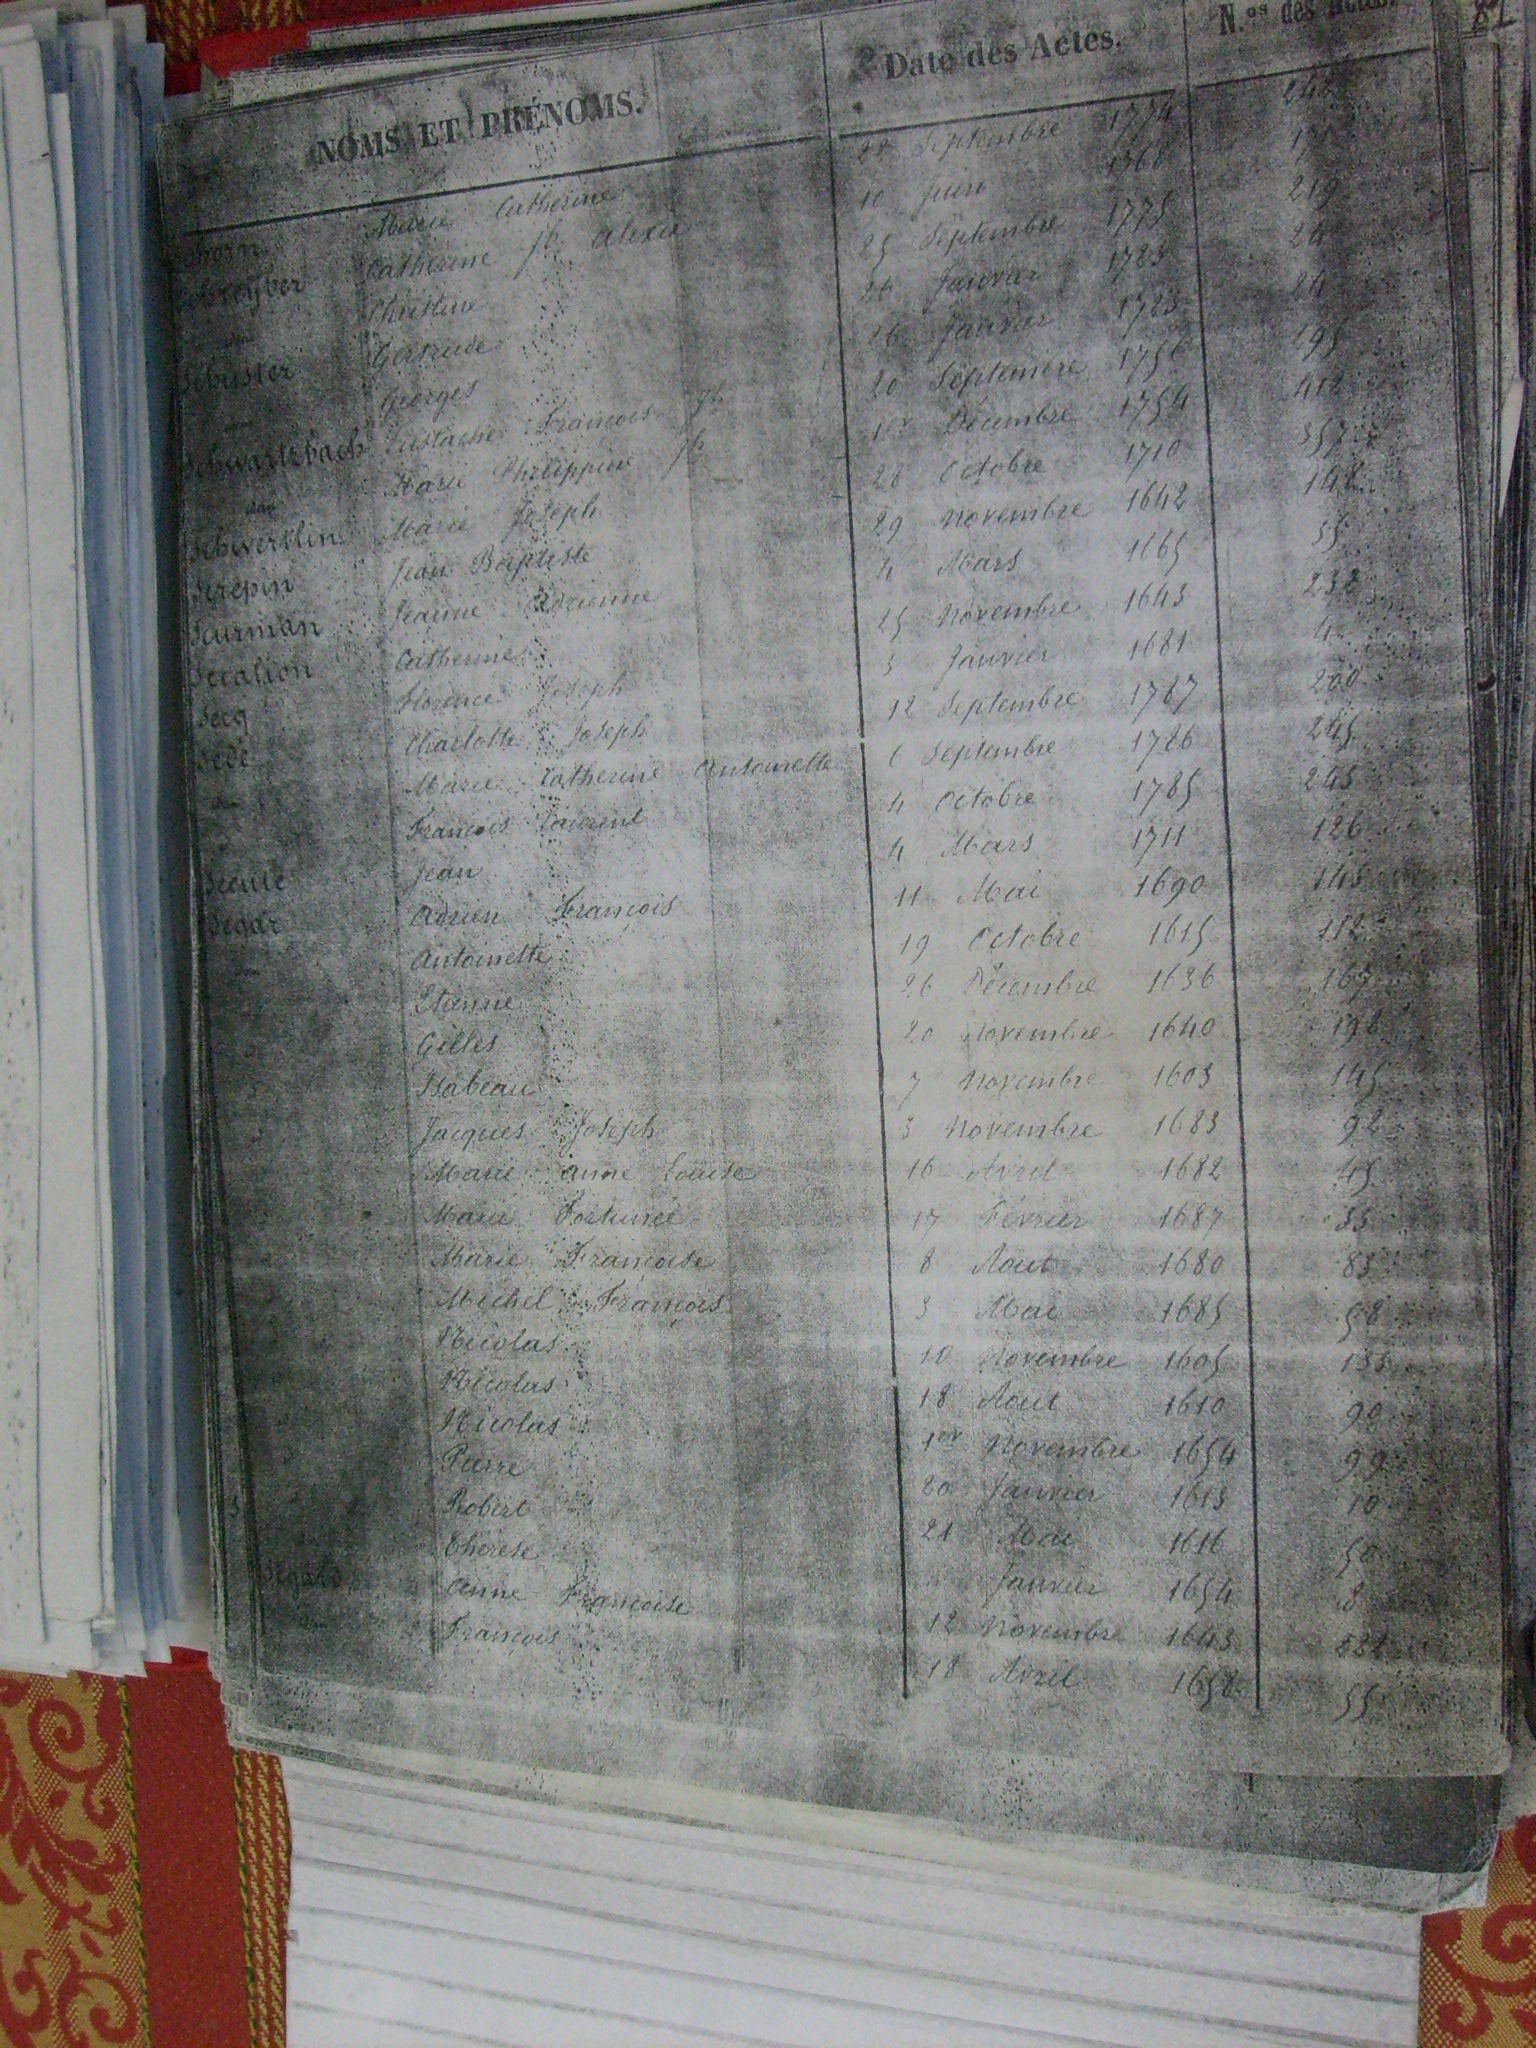 NOMS ET PRÉNOMS. Date des Actes. N.os des Actes.
Marie Catherine 22 Septembre 1774
Schreyber Catherine jh. Alexie 10 Juin 1768
Christine 25 Septembre 1775 219
Schuster Gertrude 26 Janvier 1723 24
Georges 16 Janvier 1723 24
Schwartzbach Eustache François jh 20 Septembre 195
Marie Philippine jh 1er Décembre 1754 412
Schwertlin Marie Joseph 28 Octobre 1710
Screpin Jean Baptiste 29 Novembre 1642 148
Scurman Jeanne Adrienne 4 Mars 1665 55
Catherine 25 Novembre 1643 232
Secq Florence Joseph 3 Janvier 1681 4
Sede Charlotte Joseph 12 Septembre 1767 200
Marie Catherine Antoinette 6 Septembre 1726 245
François Laurent 4 Octobre 1785 243
Jean 4 Mars 1711 126
Segar Adrien François 11 Mai 1690 143
Antoinette 19 Octobre 1615 112
Etienne 26 Décembre 1636 167
Gilles 20 Novembre 1640 198
Isabeau 7 Novembre 1603 145
Jacques Joseph 3 Novembre 1683 92
Marie Anne Louise 16 Avril 1682 45
Marie Fortunée 17 Février 1687 33
Marie Françoise 8 Aout 1680 83
Michel François 3 Mai 1685 58
Nicolas 10 Novembre 1605 133
Nicolas 18 Aout 1610 90
Nicolas 1er Novembre 1654 99
Pierre 20 Janvier 1613 10
Robert 21 Mai 1616 50
Thérèse Janvier 1654 8
Segard Anne Françoise 12 Novembre 1643
François 18 Avril 1658 55